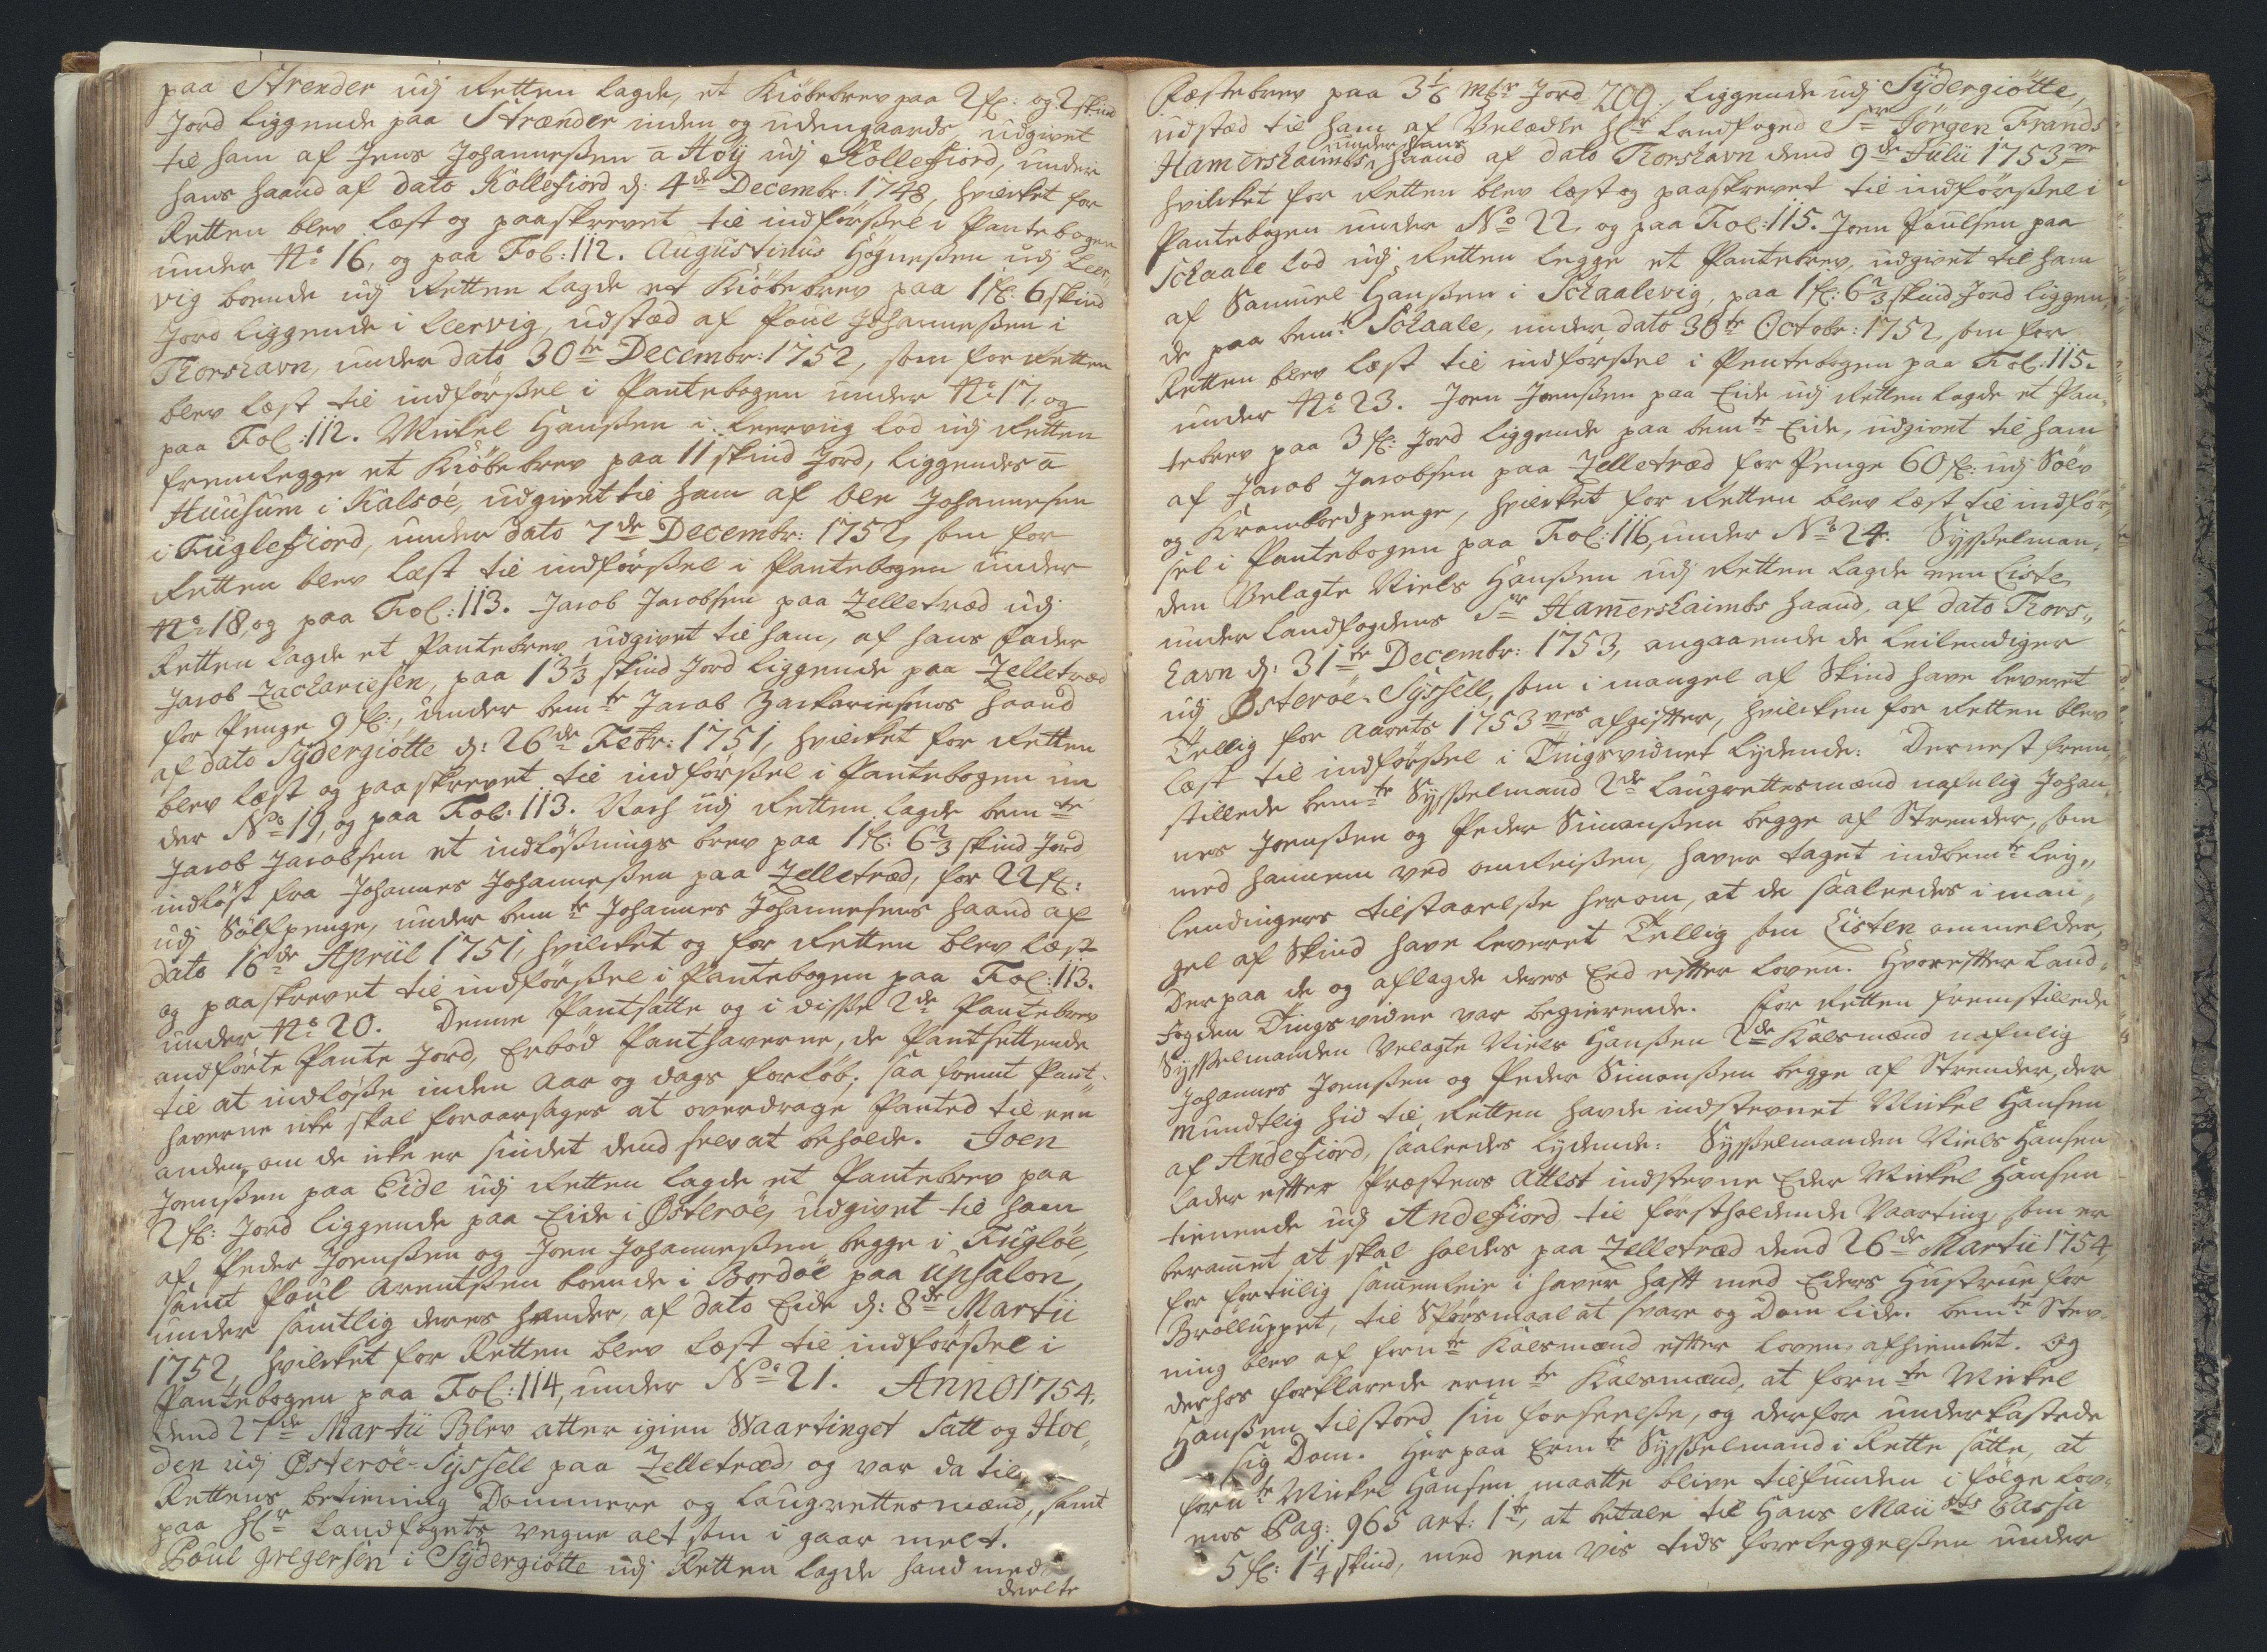 paa Strender udj Retten lagde, et Kiöbebrev paa 2 fl: og 2 skind
Jord liggende paa Strænder inden og udengaards, udgivet
til ham af Jens Johannesßen a Høÿ udj Kollefiord, under
hans haand af dato Köllefiord d: 4de Decembr: 1748, hvilcket for
Retten blev læst og paaskrevet til indförßel i Pantebogen
under No 16, og paa Fol: 112. Augustinus Högnesßen udj Leer„
vig boende udj Retten lagde et Kiöbebrev paa 1 fl: 6 skind
Jord liggende i Leervig, udstæd af Poul Johannesßen i
Thorshavn, under dato 30te Decembr: 1752, som for Retten
blev læst til indförßel i Pantebogen under No 17, og
paa Fol: 112. Mickel Hansßen i Leerviig lod udj Retten
fremlegge et Kiöbebrev paa 11 skind Jord, liggendes a
Huusum i Kalsöe, udgivet til ham af Ole Johannesen
i Fuglefiord, under dato 7de Decembr: 1752, som for
Retten blev læst til indförßel i Pantebogen under
No 18, og paa Fol: 113. Jacob Jacobsen paa Zelletræd udj
Retten lagde et Pantebrev udgivet til ham, af hans Fader
Jacob Zachariesen, paa 13 1/3 skind Jord liggende paa Zelletræd
for Penge 9 fl:, under bemte Jacob Zachariesens haand
af dato Sÿdergiötte d: 26de Febr: 1751, hvilcket for Retten
blev læst og paaskrevet til indförßel i Pantebogen un
der No 19, og paa Fol: 113. Noch udj Retten lagde bemte
Jacob Jacobsen et indlößnings brev paa 1 fl: 6 2/3 skind Jord
indlöst fra Johannes Johannesßen paa Zelletræd, for 22 fl:
udj Sölfpenge, under bemte Johannes Johannesens haand af
dato 16de Apriil 1751, hvilcket og for Retten blev læst
og paaskrevet til indförßel i Pantebogen paa Fol: 113.
under No 20. Denne Pantsatte og i disse 2de Pantebrev
andförte Pante Jord, Erböd Panthaverne, de Pantsettende
til at indlöße inden Aar og dags forlöb; saa fremt Pant„
haverne icke skal foraarsages at overdrage Panted til een
anden, om de icke er sindet dend selv at beholde. Joen
Joensßen paa Eide udj Retten lagde et Pantebrev paa
2 fl: Jord liggende paa Eide i Østeröe, udgivet til ham
af Peder Joensßen og Joen Johannesßen begge i Fuglöe,
samt Poul Arentsßen boende i Bordöe paa Upsalon,
under samtlig deres hænder, af dato Eide d: 8de Martii
1752, hvilcket for Retten blev læst til indförßel i
Pantebogen paa Fol: 114, under No 21. Anno 1754.
dend 27de Martii Blev atter igien Waartinget Satt og Hol„
den udj Østeröe-Sÿssell paa Zelletræd, og var da til
Rettens betiening Dommere og Laugrettesmænd, samt
paa Hr Landfogets vegne alt som i gaar melt.
Poul Gregersen i Sÿdergiötte udj Retten lagde hand med
deelte
Fæstebrev paa 3 1/6 mkr Jord 209. liggende udj Sÿdergiötte,
udstæd til ham af Velædle Hr Landfoged Sr Jörgen Frands
Hamershaimbs under hans haand af dato Thorshavn dend 9de Julii 1753ve
hvilcket for Retten blev læst og paaskrevet til indförßel i
Pantebogen under No 22, og paa Fol: 115. Joen Poulsen paa
Schaale lod udj Retten legge et Pantebrev, udgivet til ham
af Samuel Hansßen i Schaalevig, paa 1 fl: 6 2/3 skind Jord liggen„
de paa bemte Schaale, under dato 30te Octobr: 1752, som for
Retten blev læst til indförßel i Pentebogen paa Fol: 115.
under No 23. Joen Joensßen paa Eide udj Retten lagde et Pan„
tebrev paa 3 fl: Jord liggende paa bemte Eide, udgivet til ham
af Jacob Jacobsen paa Zelletræd for Penge 60 fl: udj Sölv
og Krambordpenge, hvilcket for Retten blev læst til indför„
sel i Pantebogen paa Fol: 116, under No 24. Sÿsßelman„
den Velagte Niels Hansßen udj Retten lagde een Liste
under Landfogdens Sr Hamershaimbs haand, af dato Thors„
havn d: 31te Decembr: 1753, angaaende de Leilendiger
udj Østeröe-Sÿssell, som i mangel af Skind have leveret
Tellig for Aarets 1753ves afgifter, hvilcken for Retten blev
læst til indförßel i Tingsvidnet lÿdende: Dernest frem„
stillede bemte Sÿsßelmand 2de Laugrettesmænd nafnlig Johan„
nes Joensßen og Peder Simonsßen begge af Strender, som
med hannem ved omreisßen, haver taget indbemte Leÿ„
lendingers tilstaaelße herom, at de saaleedes i man„
gel af Skind have leveret Tellig som Listen ommelder,
Derpaa de og aflagde deres Eed efter Loven. Hvorefter Land„
fogden Tingsvidne var begierende. For Retten fremstillede
Sÿsßelmanden Velagte Niels Hansßen 2de Kalsmænd nafnlig
Johannes Joensßen og Peder Simonsßen begge af Strender, der
mundtlig hid til Retten havde indstevnet Mickel Hansen
af Andefiord, saaleedes lÿdende: Sÿsßelmanden Niels Hansen
lader efter Præstens Attest indstevne Eder Mickel Hansen
tienende udj Andefiord til förstholdende Vaarting, som er
beramet at skal holdes paa Zelletræd dend 26de Martii 1754,
for fortiilig samenleie i haver haft med Eders Hustrue for
Brölluppet, til Spörsmaal at svare og Dom lide. bemte Stev„
ning blev af fornte Kalsmænd efter Loven afhiemlet. Og
derhos forklarede ermte Kalsmænd, at fornte Mickel
Hansßen tilstoed sin forseelße, og derfor underkastede
sig Dom. Herpaa Ermte Sÿsßelmand i Rette satte, at
fornte Mickel Hansen maatte blive tilfunden i fölge Lov„
ens Pag: 965 art: 1te, at betale til Hans Maiits Cassa
5 fl: 1 1/4 skind, med een vis tids foreleggelßen under